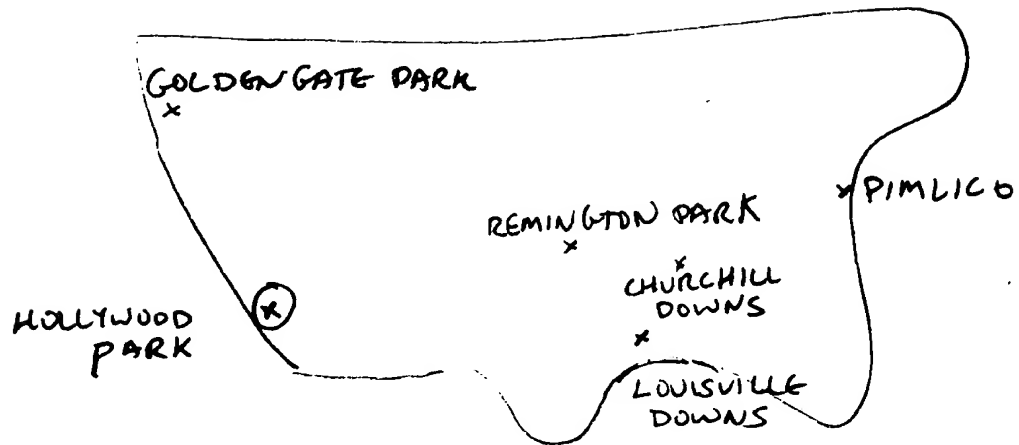 GOLDEN GATE PARK
PIMLICO
REMINGTON PARK
CHURCHILL
DOWNS
HOLLYWOOD
PARK
LOUISVILLE
DOWNS